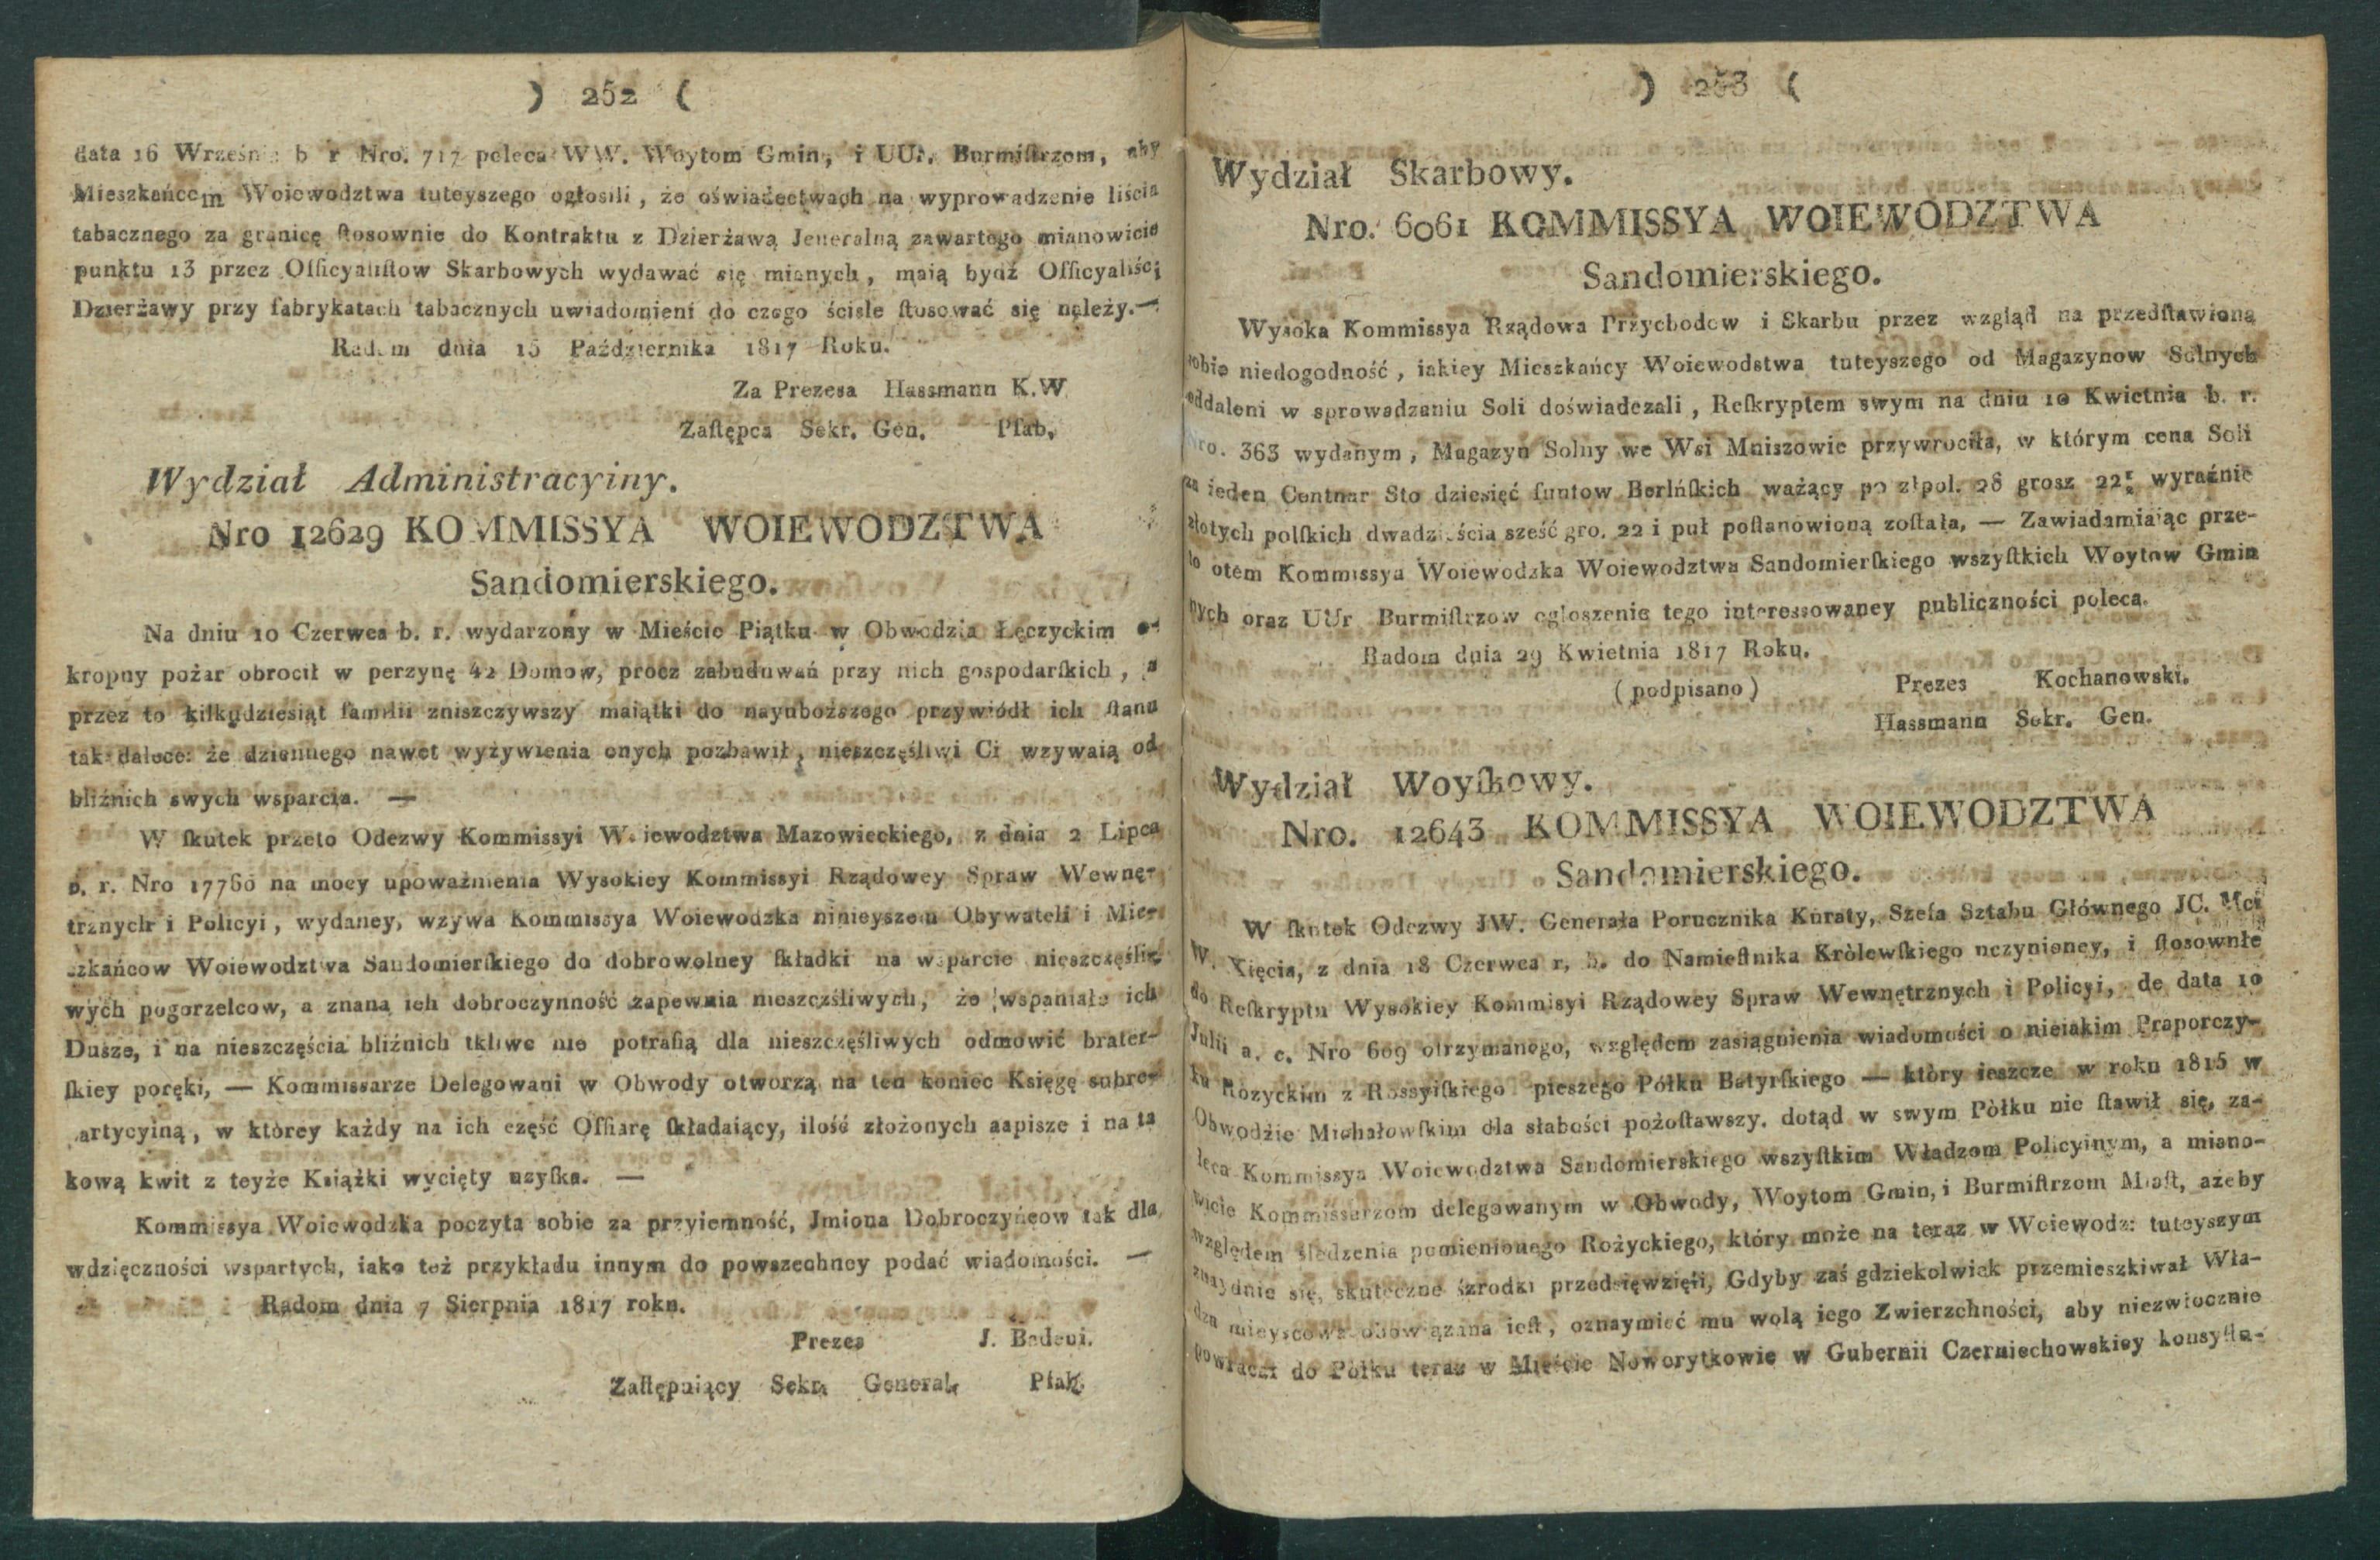 ) 252 (
data 16 Wrześn b r Nro. 717 poleca WW. Woytom Gmin, i UUr. Burmiſtrzom, aby
Mieszkańcom Woiewodztwa tuteyszego ogłosili, że oświadectwach na wyprowadzenie liścia
tabacznego za granicę ſtosownie do Kontraktu z Dzierżawą Jeneralną zawartego mianowicie
punktu 13 przez Officyaliſtow Skarbowych wydawać się mianych, maią bydź Officyaliści
Dzierżawy przy fabrykatach tabacznych uwiadomieni do czego ścisle ſtosować się należy.—
Radom dnia 15 Października 1817 Roku.
Za Prezesa Hassmann K.W
Zaſtępca Sekr. Gen. Pſab.
Wydział Administracyiny.
Nro 12629 KOMMISSYA WOIEWODZTWA
Sandomierskiego.
Na dniu 10 Czerwca b. r. wydarzony w Mieście Piątku w Obwodzia Łęczyckim o-
kropny pożar obrocił w perzynę 42 Domow, procz zabuduwań przy nich gospodarſkich, a
przez to kilkudziesiąt familii zniszczywszy maiątki do nayuboższego przywiódł ich ſtanu
tak dalece: że dziennego nawet wyżywienia onych pozbawił, nieszczęśliwi Ci wzywaią od
bliźnich swych wsparcia. —
W ſkutek przeto Odezwy Kommissyi Woiewodztwa Mazowieckiego, z dnia 2 Lipca
b. r. Nro 17760 na mocy upoważnienia Wysokiey Kommissyi Rządowey Spraw Wewnę-
trznych i Policyi, wydaney, wzywa Kommissya Woiewodzka ninieyszem Obywateli i Mie-
szkańcow Woiewodztwa Sandomierſkiego do dobrowolney ſkładki na wsparcie nieszczęśli-
wych pogorzelcow, a znaną ich dobroczynność zapewnia nieszczśliwych, że wspaniałe ich
Dusze, i na nieszczęścia bliźnich tkliwe nie potrafią dla nieszczęśliwych odmowić brater-
ſkiey poręki, — Kommissarze Delegowani w Obwody otworzą na ten koniec Księgę subre-
partycyiną, w którey każdy na ich część Offiarę ſkładaiący, ilość złożonych zapisze i na ta
kową kwit z teyże Książki wycięty uzyſka. —
Kommissya Woiewodzka poczyta sobie za przyiemność, Jmiona Dobroczyńcow tak dla
wdzięczności wspartych, iako też przykładu innym do powszechney podać wiadomości. —
Radom dnia 7 Sierpnia 1817 roku.
Prezes J. Badeni.
Zaſtępuiący Sekr. General. Pſab.
) 253 (
Wydział Skarbowy.
Nro. 6061 KOMMISSYA WOIEWODZTWA
Sandomierskiego.
Wysoka Kommissya Rządowa Przychodow i Skarbu przez wzgląd na przedſtawioną
sobie niedogodność, iakiey Mieszkańcy Woiewodstwa tuteyszego od Magazynow Solnych
oddaleni w sprowadzaniu Soli doświadczali, Reſkryptem swym na dniu 10 Kwietnia b. r.
Nro. 363 wydanym, Magazyn Solny we Wsi Mniszowie przywrociła, w którym cena Soli
za ieden Centnar Sto dziesięć funtow Berlńſkich ważący po złpol. 28 grosz 22½ wyraźnie
złotych polſkich dwadzieścia sześć gro. 22 i puł poſtanowioną zoſtała, — Zawiadamiaiąc prze-
to otem Kommissya Woiewodzka Woiewodztwa Sandomierſkiego wszyſtkich Woytow Gmin
nych oraz UUr Burmiſtrzow ogloszenie tego interessowaney publiczności poleca.
Radom dnia 29 Kwietnia 1817 Roku.
(podpisano) Prezes Kochanowski.
Hassmann Sekr. Gen.
Wydział Woyſkowy.
Nro. 12643 KOMMISSYA WOIEWODZTWA
Sandomierskiego.
W ſkutek Odezwy JW. Generała Porucznika Kuraty, Szefa Sztabu Głównego JC. Mci
W. Xięcia, z dnia 18 Czerwca r, b. do Namieſtnika Królewſkiego uczynioney, i ſtosownie
do Reſkryptu Wysokiey Kommisyi Rządowey Spraw Wewnętrznych i Policyi, de data 10
Julii a. c. Nro 609 otrzymanego, względem zasiągnienia wiadomości o nieiakim Praporczy-
ku Rozyckim z Rossyiſkiego pieszego Półku Batyrſkiego — który ieszcze w roku 1815 w
Obwodzie Michałowſkim dla słabości pożoſtawszy. dotąd w swym Pòłku nie ſtawił się, za-
leca Kommissya Woiewodztwa Sandomierskiego wszyſtkim Władzom Policyinym, a miano-
wicie Kommissarzom delegowanym w Obwody, Woytom Gmin, i Burmiſtrzom Miaſt, ażeby
względem śledzenia pomienionego Rożyckiego, który może na teraz w Woiewodz: tuteyszym
znayduie się, skuteczne śzrodki przedsięwzięli, Gdyby zaś gdziekolwiek przemieszkiwał Wła-
dza mieyscowa obowiązana ieſt, oznaymieć mu wolą iego Zwierzchności, aby niezwłocznie
powracał do Półku teraz w Mieście Noworytkowie w Gubernii Czerniechowskiey konsyſtu-